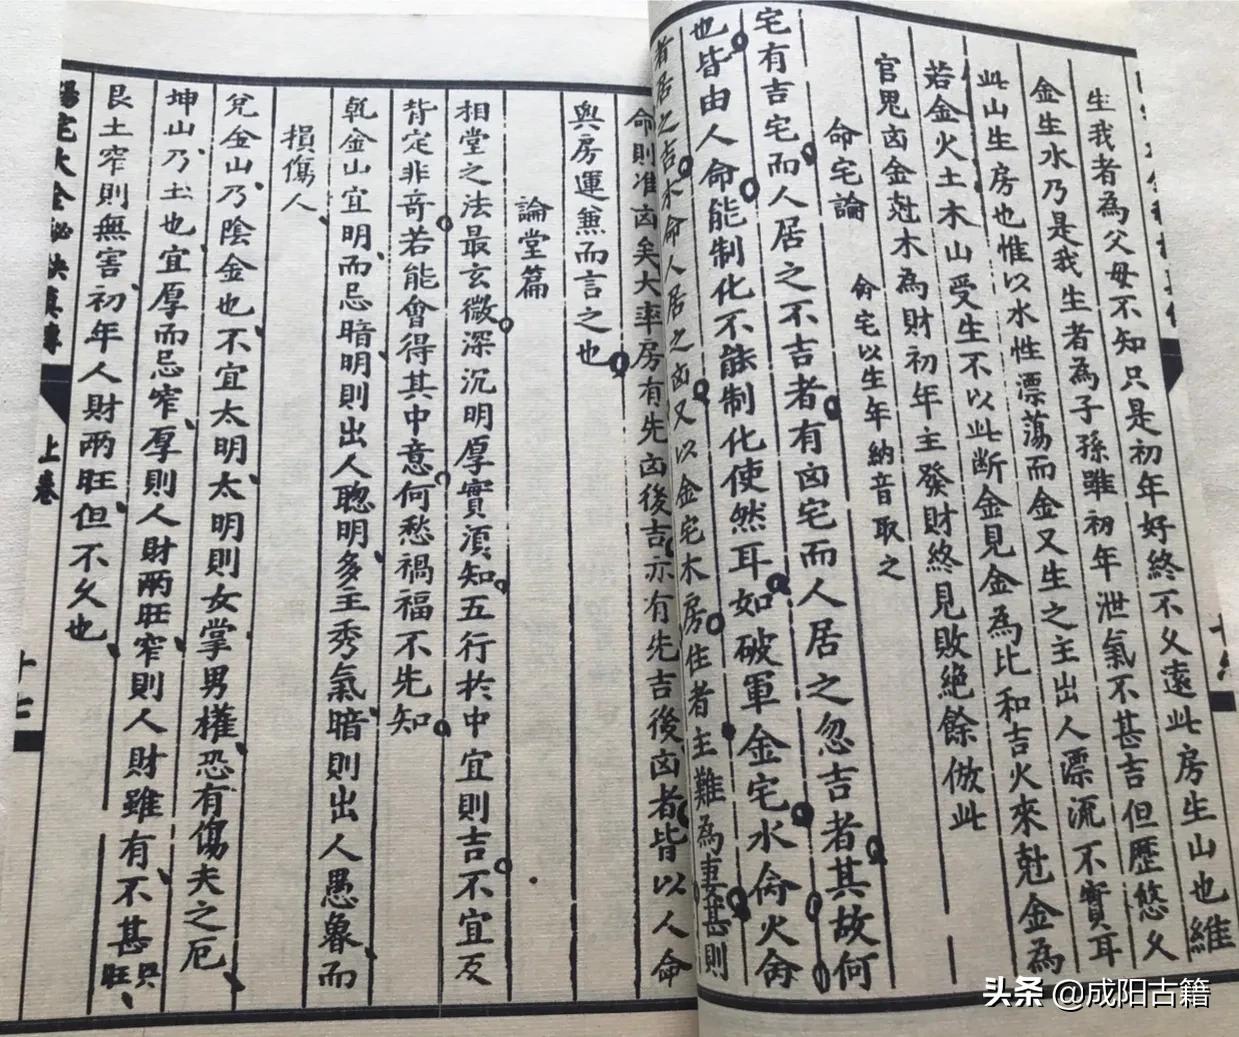 生我者為父母不知只是初年好終不久遠此房生山也維
金生水乃是我生者為子孫雖初年泄氣不甚吉但歷悠久
此山生房也惟以水性漂蕩而金又生之主出人漂流不實耳
若金火土木山受生不以此断金見金為比和吉火來尅金為
官鬼凶金尅木為財初年主發財終見敗絶餘倣此
命宅論 命宅以生年納音取之
宅有吉宅而人居之不吉者有凶宅而人居之忽吉者其故何
也皆由人命能制化不能制化使然耳如破軍金宅水命火命
者居之吉木命人居之凶又以金宅木房住者主難為妻甚則
命則准凶矣大率房有先凶後吉亦有先吉後凶者皆以人命
與房運兼而言之也
論堂篇
相堂之法最玄微深沉明厚實須知五行於中宜則吉不宜反
背定非奇若能會得其中意何愁禍福不先知
乾金山宜明而忌暗明則出人聰明多主秀氣暗則出人愚魯而
損傷人
兌金山乃陰金也不宜太明太明則女掌男權恐有傷夫之厄
坤山乃土也宜厚而忌窄厚則人財兩旺窄則人財雖有不甚興旺
艮土窄則無害初年人財兩旺但不久也
陽宅大全秘訣真傳 上卷 十七
头条 @成阳古籍